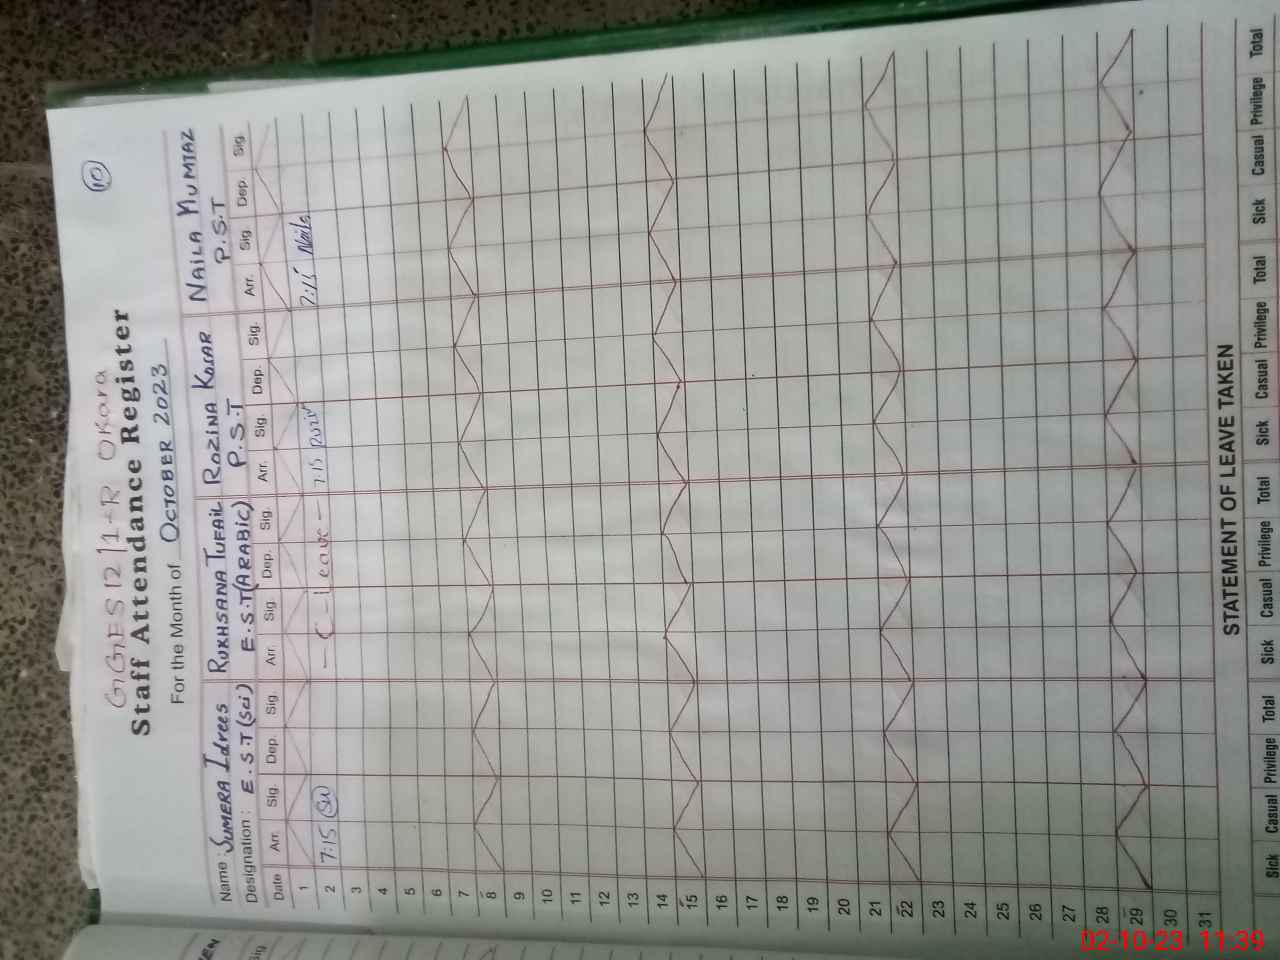 10
GGES 12/1-R Okara
Staff Attendance Register
For the Month of OCTOBER 2023
Name : SUMERA Idrees RUKHSANA TUFAIL ROZINA KOSAR NAILA MUMTAZ
Designation : E.S.T (sci) E.S.T (ARABIC) P.S.T P.S.T
Date Arr. Sig. Dep. Sig. Arr. Sig. Dep. Sig. Arr. Sig. Dep. Sig. Arr. Sig. Dep. Sig.
1
2 7:15 - C - leave - 7:15 7:15 Naila
3
4
5
6
7
8
9
10
11
12
13
14
15
16
17
18
19
20
21
22
23
24
25
26
27
28
29
30
31
STATEMENT OF LEAVE TAKEN
Sick Casual Privilege Total Sick Casual Privilege Total Sick Casual Privilege Total Sick Casual Privilege Total
Sig
02-10-23 11:39